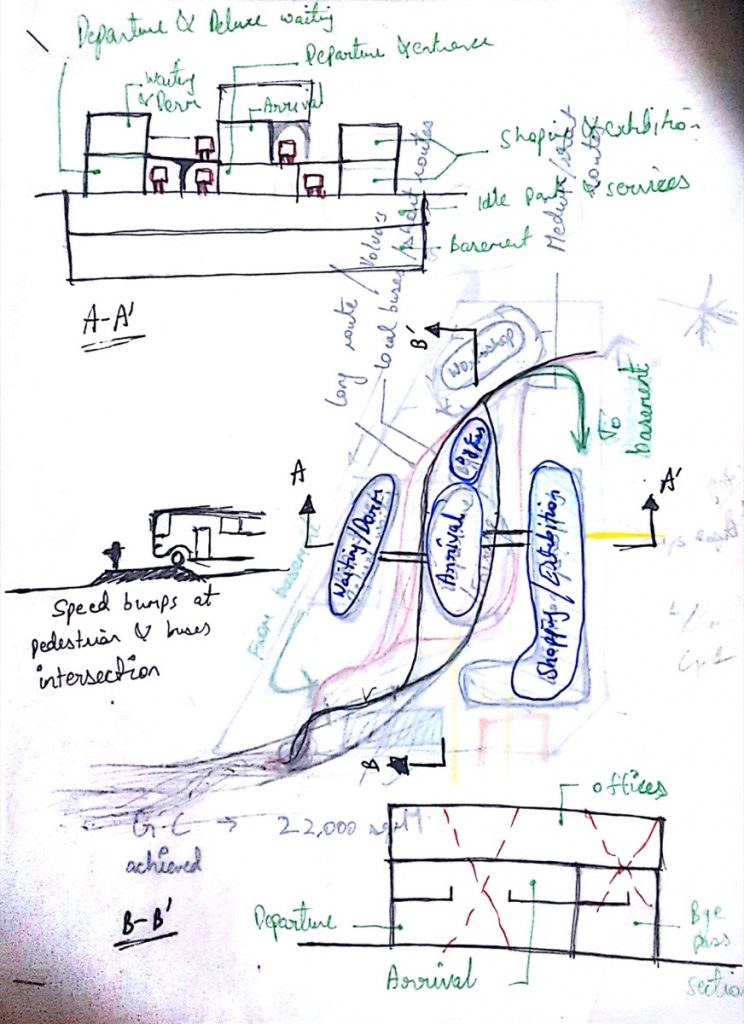 Departure & Deluxe waiting
Departure & entrance
Waiting
& Dorm
Arrival
Shoping & exhibition
& services
Idle Park
Basement
A-A'
Long route / Volvos
local buses / short routes
Medium / short
routes
B'
Workshop
To
basement
A
A'
Waiting/Dorm
Arrival
Shopping/Exhibition
From basement
Speed bumps at
pedestrian & buses
intersection
B
G.C → 22,000 sqmt.
achieved
B-B'
offices
Departure
Arrival
Bye
pass
section